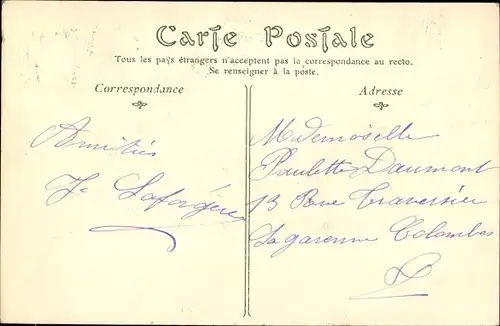 Carte Postale
Tous les pays étrangers n'acceptent pas la correspondance au recto.
Se renseigner à la poste.
Correspondance
Adresse
Amitiés
Mademoiselle
Paulette Daumont
13 Rue Traversière
Lagarenne Colombes